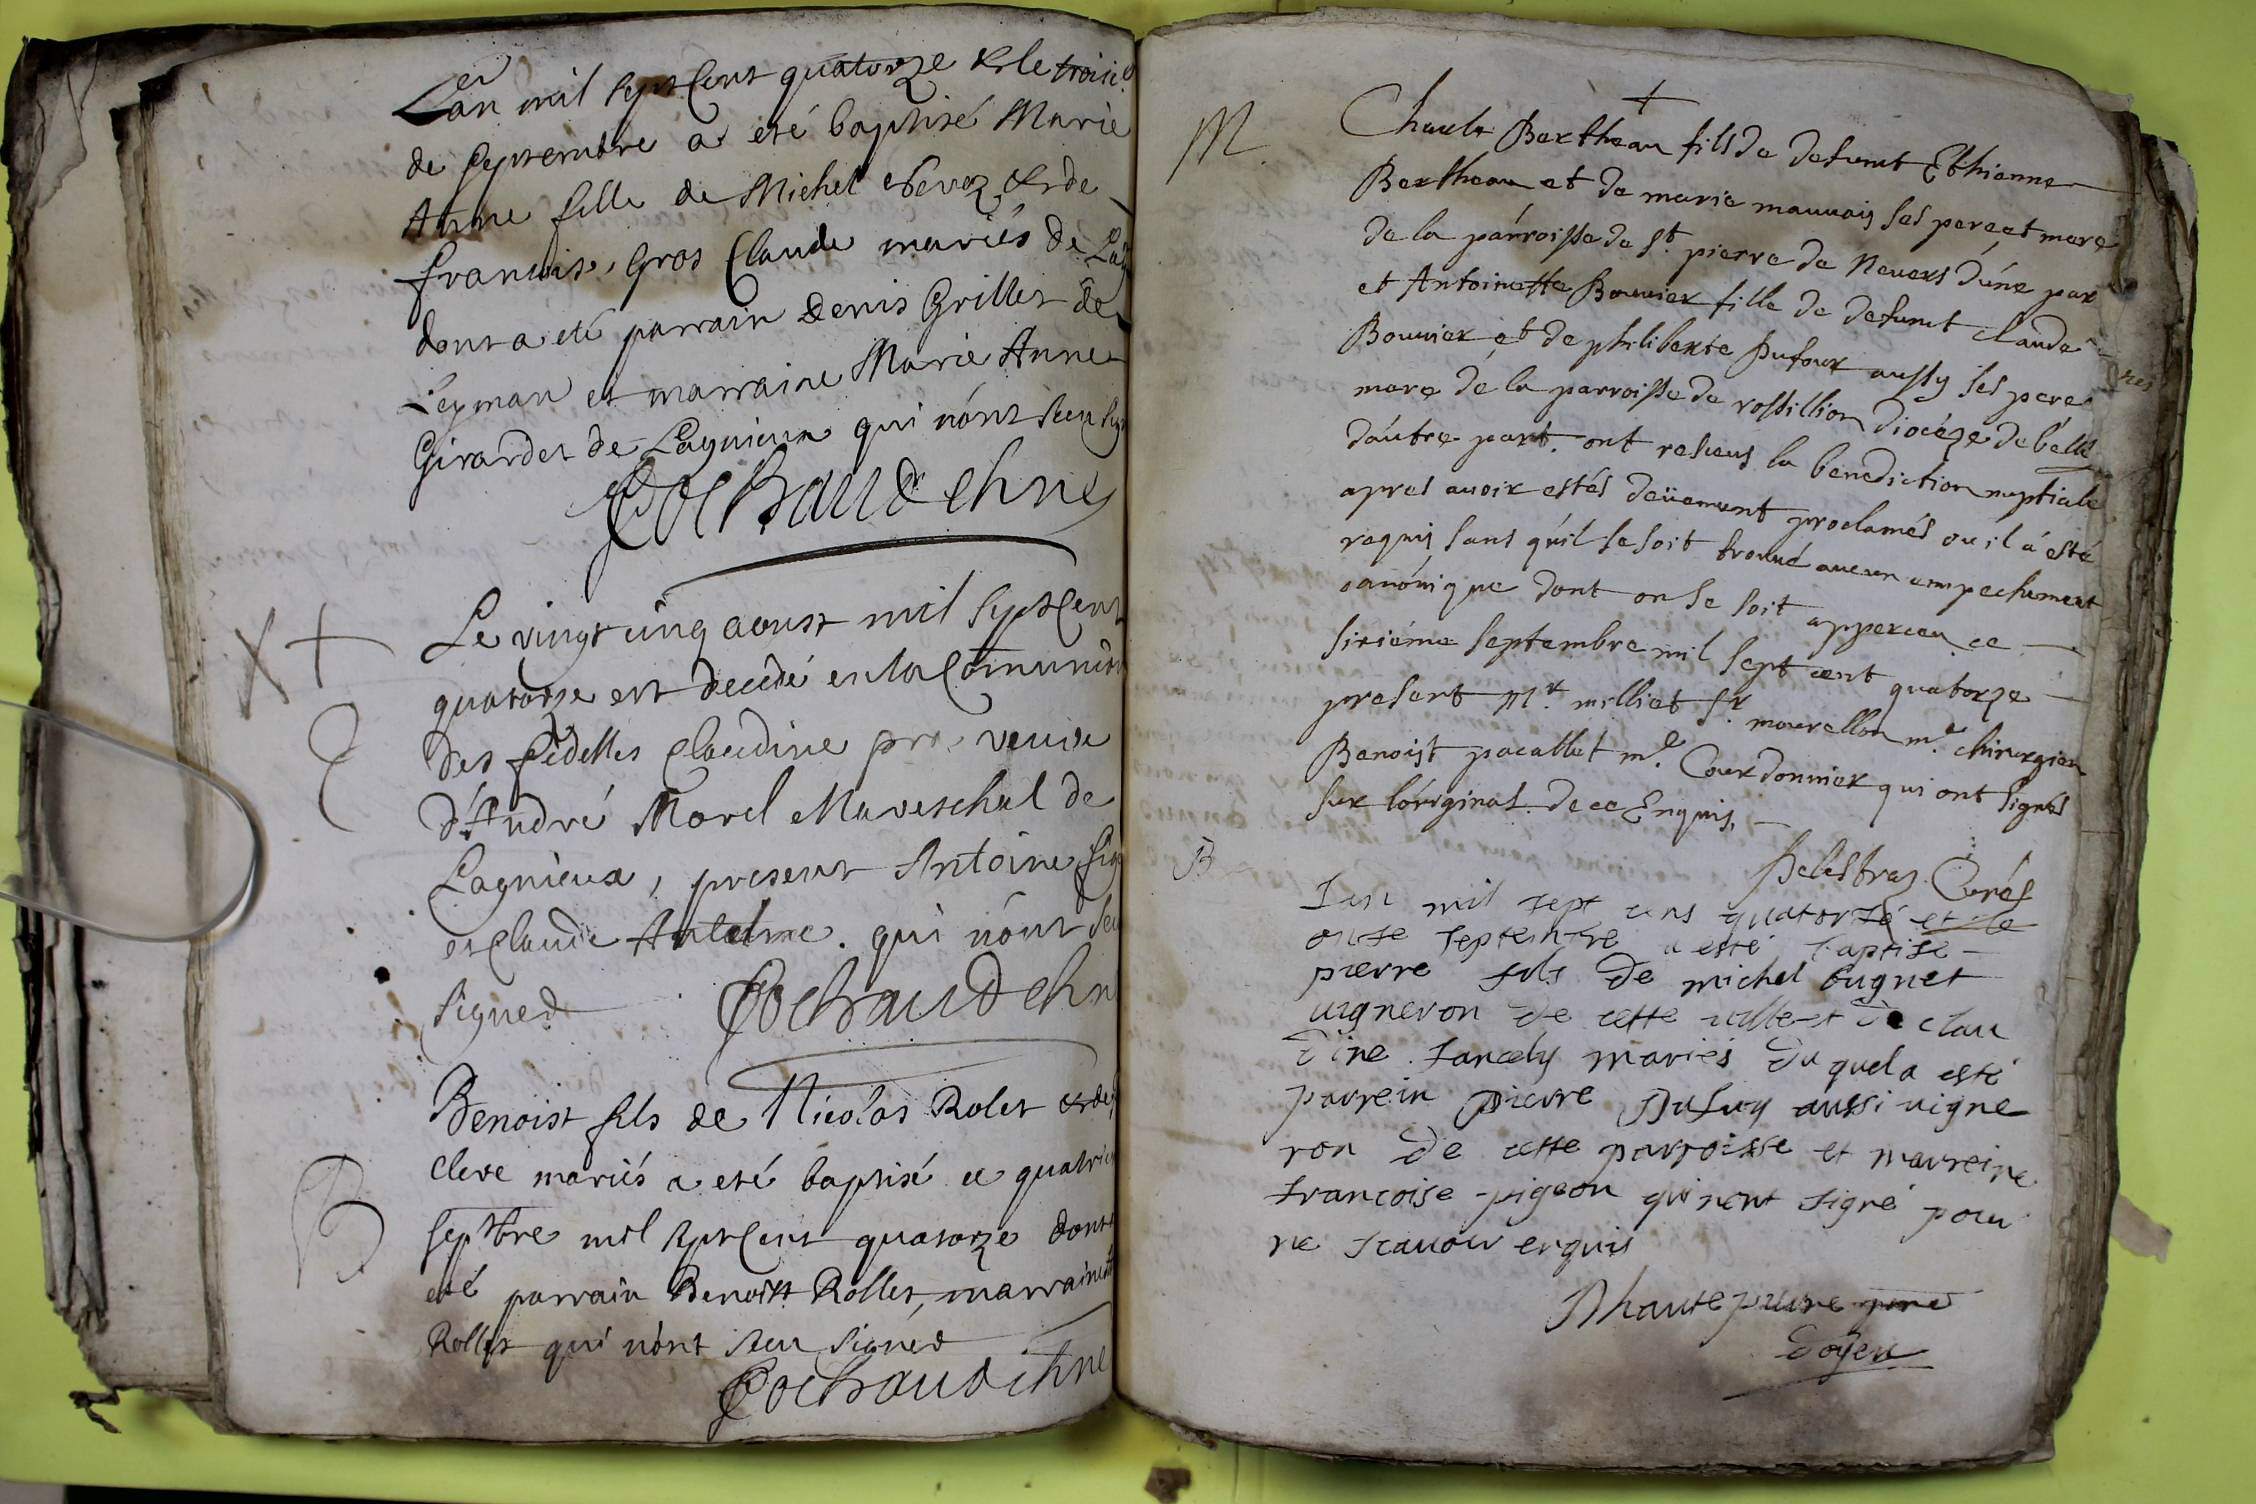 L'an mil sept Cent quatorze & le troisie
de septembre a eté baptisé Marie
Anne fille de Michel & de
francoise Gros Claude mariés de Lag
dont a eté parrain Denis Grillet de
Leyman et marraine Marie Anne
Girardet de Lagnieux qui n'ont sceu sig
Cochaud chne
X +
Le vingt cinq aoust mil sept Cent
quatorze est decedé en la Communion
des fidelles Claudine pro veuve
d'André Morel Mareschal de
Lagnieux, present Antoine
et Claude Antelme. qui n'ont sceu
signed Cochaud chn
Benoist fils de Nicolas Rolet & de
Clere mariés a eté baptisé ce quatrie
B
septbre mil sept Cent quatorze dont
eté parrain Benoist Rollet, marraine
Rollet qui n'ont sceu signed
Cochaud chne
+
M. Charle Bertheau fils de defunt Ethienne
Bertheau et de marie mauvais ses pere et mere
de la parroisse de St. pierre de Nevers d'úne par
et Antoinette Bouvier fille de defunt claude
Bouvier et de philiberte Dufour aussy ses pere
mere de la parroisse de rossillion diocéze de belle
d'áutre part. ont resceus la benediction nuptiale
apres avoir estés deüement proclamés ou il á esté
requis sans qu'il se soit trouvé aucun empechement
canónique dont on se soit apperceu ce
sixiéme septembre mil sept cent quatorze
present Mr. milliet Sr. mourellon me. chirurgien
Benoist pacallet me. Courdonnier qui ont signés
sur l'óriginal de ce Enquis.
Delestraz Curés
B
Lan mil sept cens quatorse et le
onse septembre a esté baptisé
pierre fils de michel bugnet
vigneron de cette ville et de clau
dine Jancely mariés du quel a esté
parrein pierre Dufuy aussi vigne
ron de cette parroisse et marreine
francoise pigeon qui nont signé pour
ne scavoir enquis
Dhautepierre pre
doyen